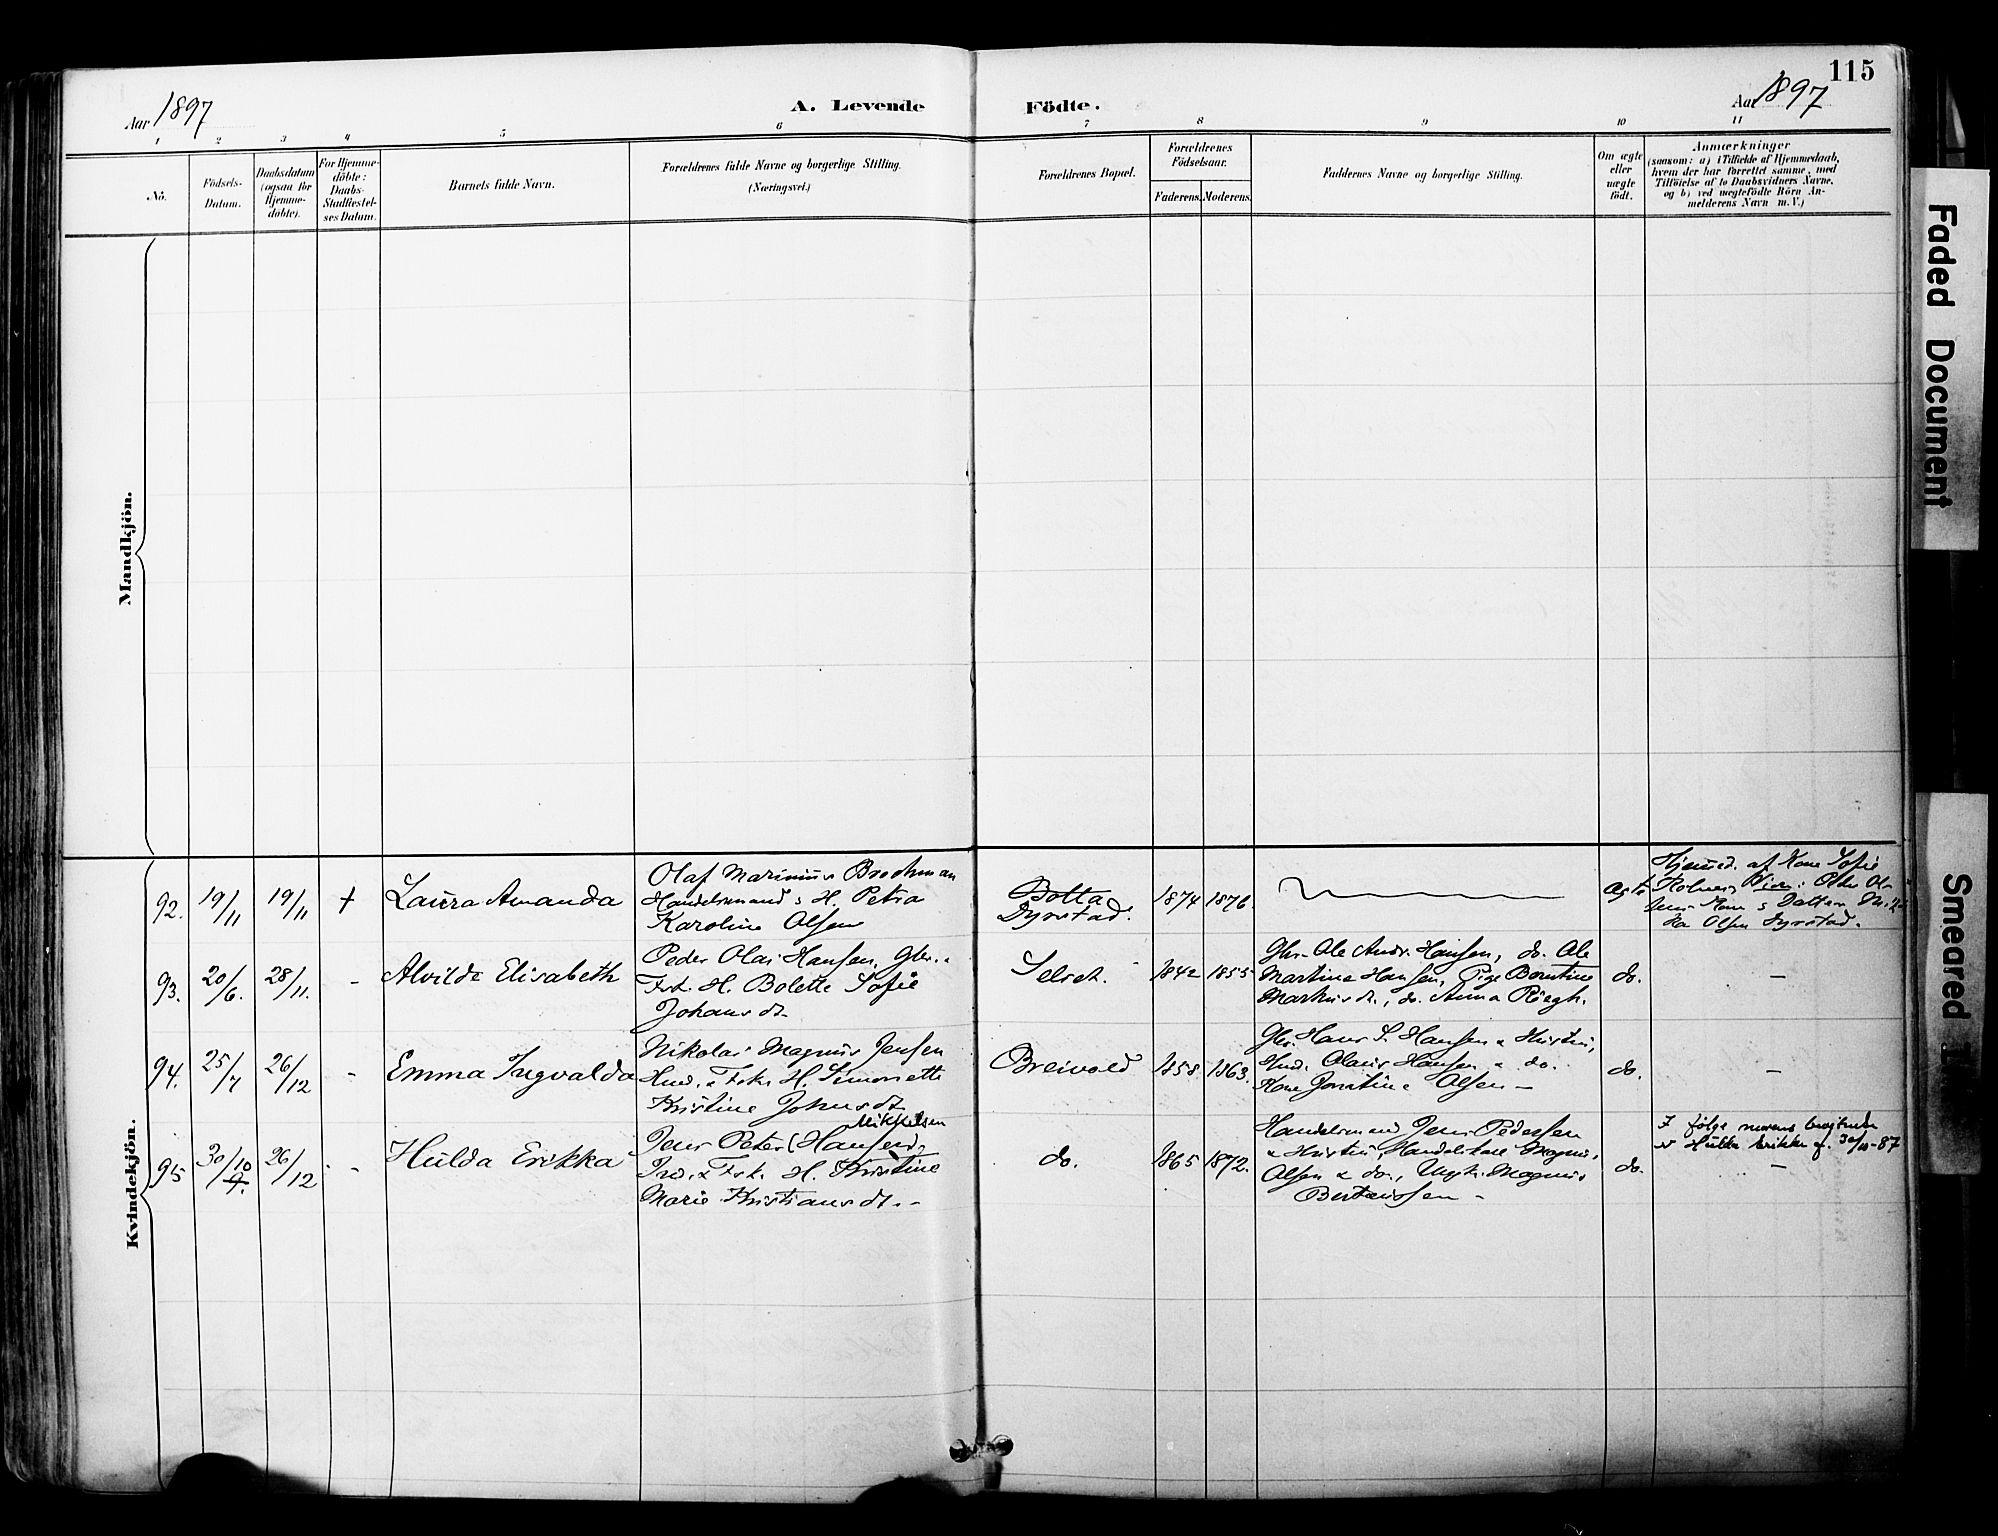 115
Aar 1897
A. Levende Födte.
Aar 1897
1 2 3 4 5 6 7 8 9 10 11
No.
Födsels-
Datum.
Daabsdatum
(ogsaa for
Hjemme-
døbte).
For Hjemme-
döbte:
Daabs-
Stadfæstel-
ses Datum.
Barnets fulde Navn.
Forældrenes fulde Navne og borgerlige Stilling.
(Næringsvei.)
Forældrenes Bopæl.
Forældrenes
Födselsaar.
Faderens. Moderens.
Faddernes Navne og borgerlige Stilling.
Om ægte
eller
uægte
födt.
Anmærkninger
(saasom: a) i Tilfælde af Hjemmedaab,
hvem der har forrettet samme, med
Tilföielse af to Daabsvidners Navne,
og b) ved uægtefödte Börn An-
melderens Navn m. V.)
Mandkjön.
Kvindekjön.
92. 19/11 19/11 + Laura Amanda
Olaf Marinius Brochman
Handelsmand & H. Petra
Karoline Olsen
Bolta
Dyrstad.
1874 1876.
Ægte
Hjemmed. af Kone Sofie
Olsen Dyrstad.
93. 20/6. 28/11. - Alvilde Elisabeth
Peder Olai Hansen, Gbr. &
Fsk. H. Bolette Sofie
Johansdt.
Selset.
1842 1855
Gbr. Ole Andr. Hansen, do. Ole
Martine Hansen, Pige Berntine
Markusdt., do. Anna Röegh.
do. —
94. 25/7 26/12 - Emma Ingvalda
Nikolai Magnus Jensen
Ind. & Fsk. H. Simonette
Kristine Johnsdt.
Breivold
1858 1863.
Gbr. Hans S. Hansen & Hustru,
Ind. Olaus Hansen & do.
Kone Jonetine Olsen —
do. —
95 30/10 9. 26/12 - Hulda Erikka
Mikkelsen
Jens Peter (Hansen),
Ind. & Fsk. H. Kristine
Marie Kristiansdt. -
do.
1865 1872.
Handelsmand Jens Pedersen
& Hustru, Handelskone Magnus
Olsen & do., Ungk. Magnus
Berteussen -
do. —
I følge morens
Hulda Erikka f. 30/10-87
Faded Document
Smeared